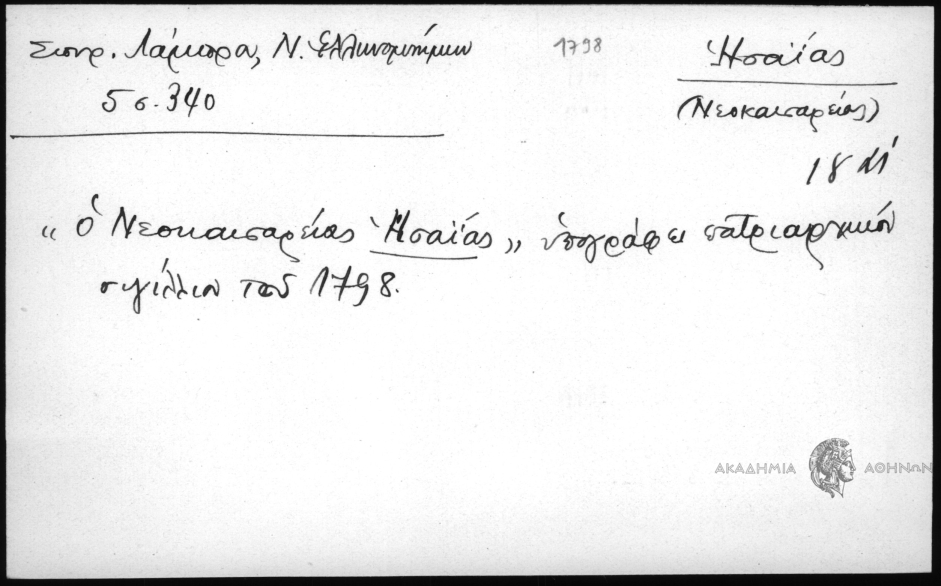 Σπυρ. Λάμπρου, Ν. Ἑλληνομνήμων
5 σ. 340
1798
Ἡσαΐας
(Νεοκαισαρείας)
18
« ὁ Νεοκαισαρείας Ἡσαΐας » ὑπογράφει πατριαρχικόν
σιγίλλιον τοῦ 1798.
ΑΚΑΔΗΜΙΑ ΑΘΗΝΩΝ